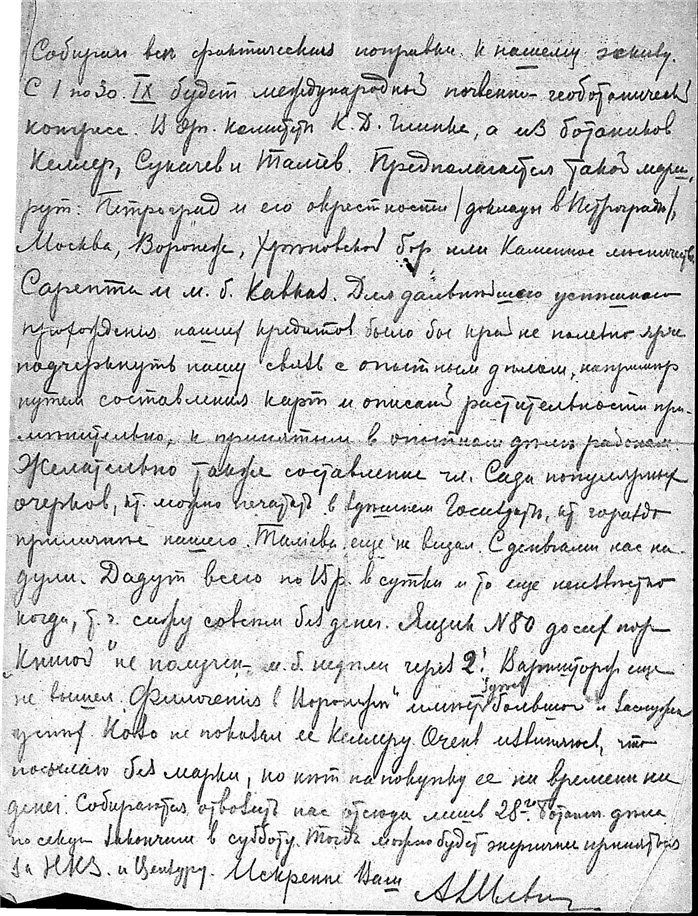 Собираю все фактические поправки к нашему
С 1 по 30. IX будет международный почвенно-геоботанический
конгресс. В орг. комитете К. Д. Глинка, а из ботаников
Келлер, Сукачев и Талиев. Предполагается такой марш-
рут: Петроград и его окрестности /доклады в Петрограде/,
Москва, Воронеж, Хреновской бор или Каменное лесничество
Сарепта и м. б. Кавказ. Для дальнейшего успешного
прохождения наших кредитов было бы крайне полезно ярче
подчеркнуть нашу связь с опытным делом, например
путем составления карт и описаний растительности при-
менительно к принятым в опытном деле районам.
Желательно также составление гл. Сада популярных
очерков, кт. можно печатать в здешнем Госиздате, кт гораздо
приличнее нашего. Талиева еще не видал. С деньгами нас на-
дули. Дадут всего по 15 р. в сутки и то еще неизвестно
когда, т. ч. сижу совсем без денег. Ящик N80 до сих пор
"Книгой" не получен - м. б. недели через 2! еще
не вышел. в Воронеже" имеет большой и
успех. Козо не показал ее Келлеру. Очень извиняюсь, что
посылаю без марки, но нет на покупку ее ни времени ни
денег. Собираются отвозить нас отсюда лишь 28го. Ботан.
по секции закончим в субботу. Тогда можно будет энергичнее приняться
за НКЗ. и Цензуру. Искренне Ваш